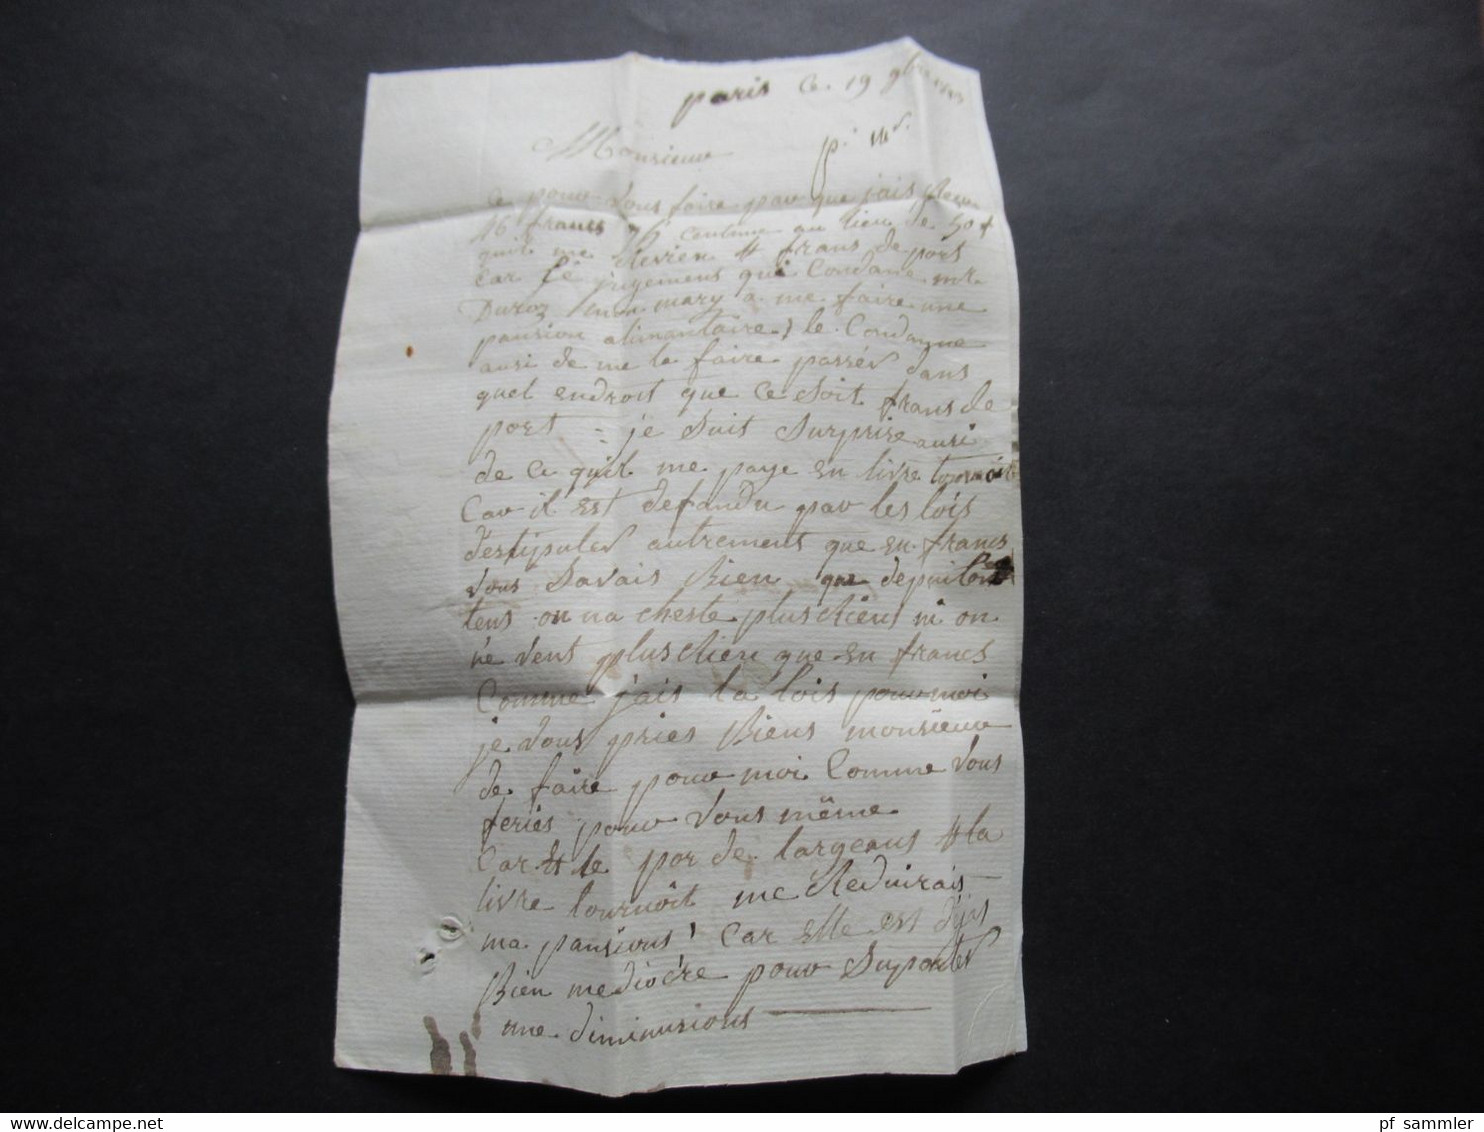 paris ce 19 9bre
Monsieur
ce pour vous faire par que jais Resu
46 francs 76 centime au lieu de 50 f
quil me Revien et frans de port
Car le jugemens qui Condane mr
Duroz mon mary a me faire une
pansion alimantaire, le Condamne
ausi de me la faire passer dans
quel endroit que ce soit frans de
port = je suit surprise ausi
de ce quil me paye en livre tournoit
Car il est defandu par les lois
destipuler autrement que en francs
vous savais Bien que depuis lon
tens on na cheste plus Riens ni on
ne vent plus Rien que en francs
Comme jais la lois pour moi
je vous pries Biens monsieur
de faire pour moi Comme vous
feries pour vous même
Car et le por de largeans et la
livre tournoit me Reduirais
ma pansions, Car elle est dejas
Bien mediocre pour suporter
une diminusions
pf sammler